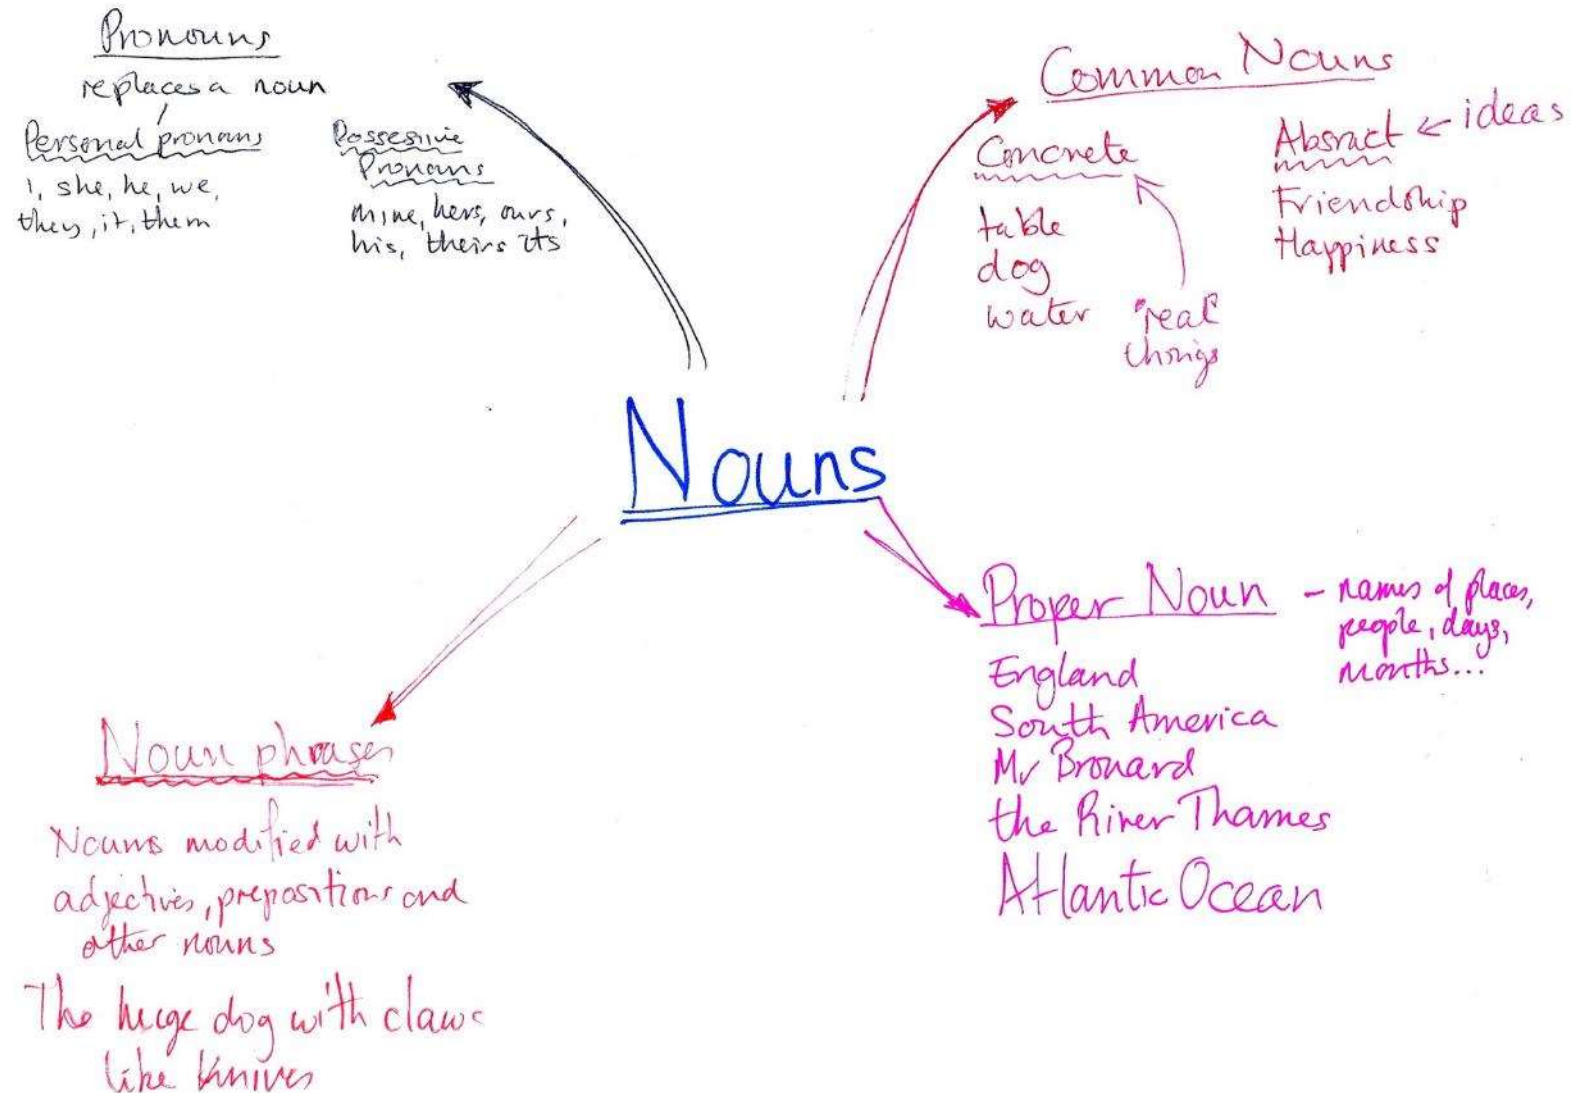 Pronouns
replaces a noun
Personal pronouns
I, she, he, we,
they, it, them
Possessive
Pronouns
mine, hers, ours,
his, theirs its
Common Nouns
Concrete
table
dog
water
"real"
things
Absract ← ideas
Friendship
Happiness
Nouns
Proper Noun - names of places,
people, days,
months...
England
South America
Mr Brouard
the River Thames
Atlantic Ocean
Noun phrases
Nouns modified with
adjectives, prepositions and
other nouns
The huge dog with claws
like knives